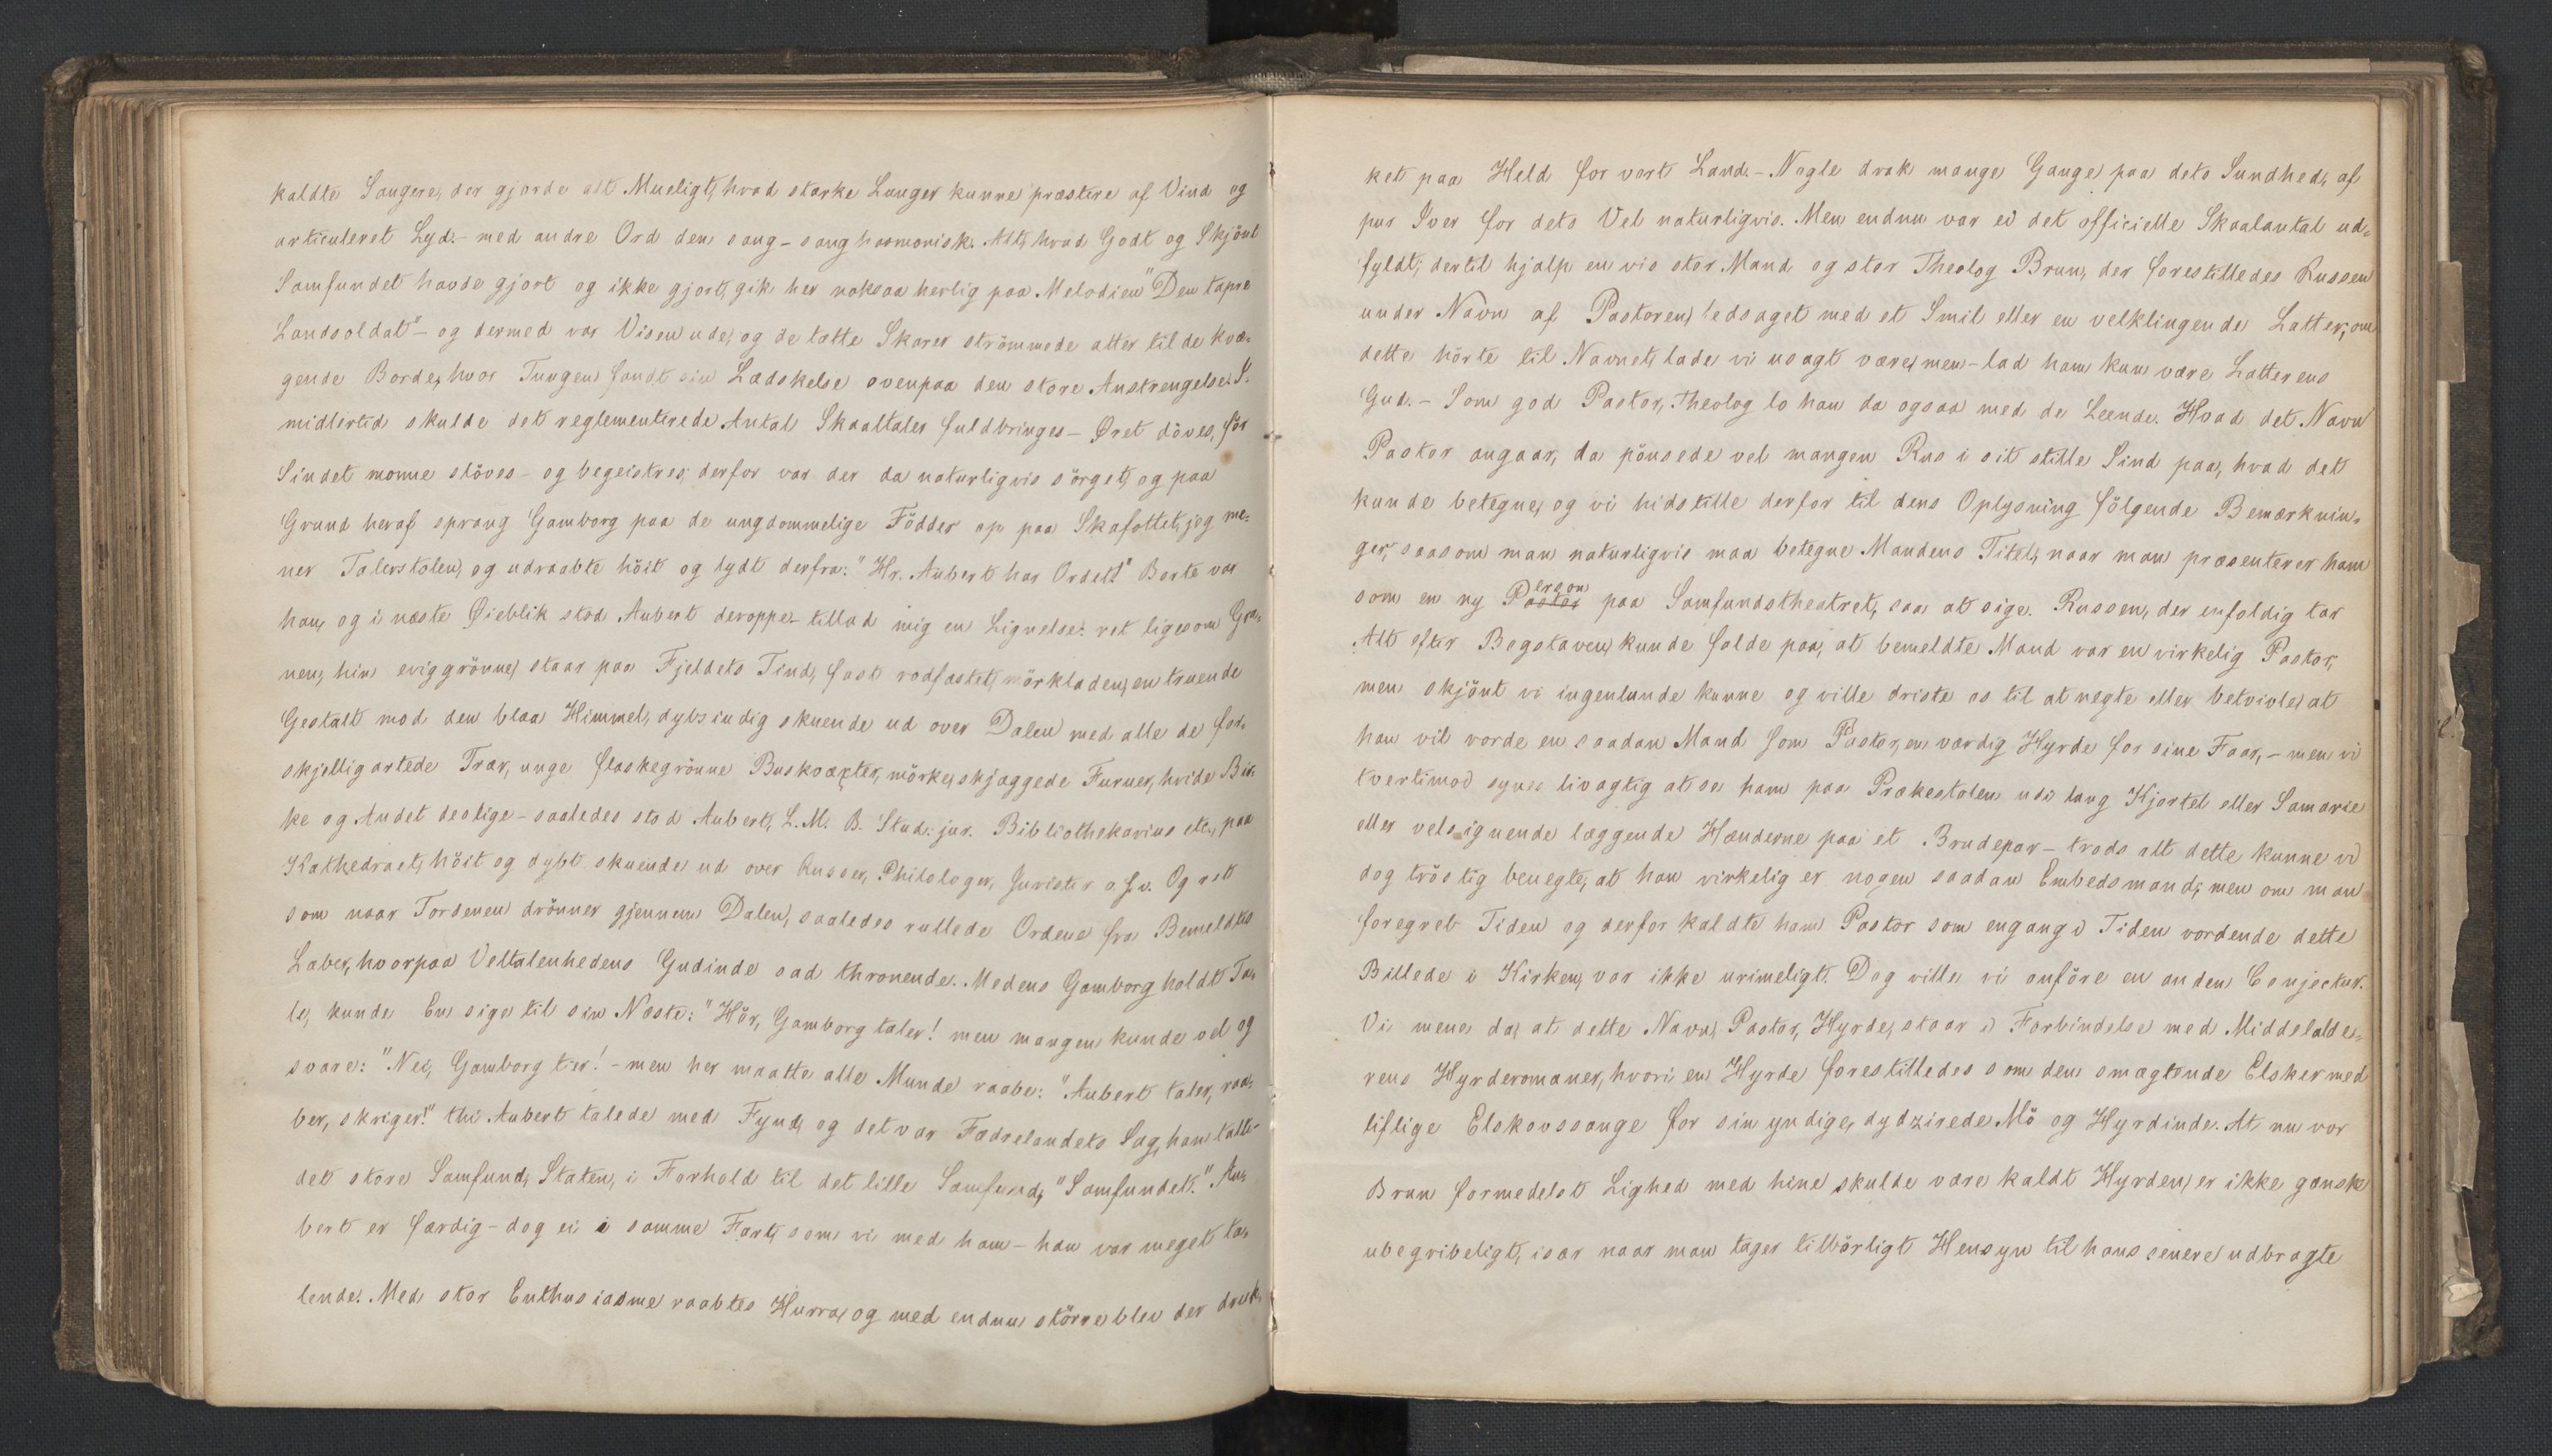 kaldte Sangere, der gjorde alt Mueligt, hvad stærke Lunger kunne præstere af Vind og
articuleret Lyd. - med andre Ord den sang - sang harmonisk. Alt, hvad Godt og Skjönt
Samfundet havde gjort og ikke gjort, gik her noksaa herlig paa Melodien "Den tapre
Landsoldat" - og dermed var Visen ude, og de tætte Skarer strömmede atter til de kvæ-
gende Borde, hvor Tungen fandt sin Lædskelse ovenpaa den store Anstrengelse. I-
midlertid skulde det reglementerede Antal Skaaltaler fuldbringes - Öret döves, för
Sindet monne slöves - og begeistres; derfor var der da naturligvis sörget, og paa
Grund heraf sprang Gamborg paa de ungdommelige Födder op paa Skafottet, jeg me-
ner Talerstolen, og udraabte höit og lydt derfra: "Hr. Aubert har Ordet!" Borte var
han, og i næste Öieblik stod Aubert deroppe - tillad mig en Lignelse: ret ligesom Gra-
nen, hin eviggrönne, staar paa Fjeldets Tind, fast rodfæstet, mörkladen, en truende
Gestalt mod den blaa Himmel, dybsindig skuende ud over Dalen med alle de for-
skjelligartede Trær, unge flaskegrönne Buskvæxter, mörke, skjæggede Furuer, hvide Bir-
ke og Andet deslige - saaledes stod Aubert, L. M. B. Stud. jur. Bibliothekarius etc., paa
Kathedraet, höit og dybt skuende ud over Russer, Philologer, Jurister o.s.v. Og ret
som naar Tordenen drönner gjennem Dalen, saaledes rullede Ordene fra Bemeldtes
Læber, hvorpaa Veltalenhedens Gudinde sad thronende. Medens Gamborg holdt Ta-
le, kunde En sige til sin Næste: "Hör, Gamborg taler! men mangen kunde vel og
svare: "Nei, Gamborg tier! - men her maatte alle Munde raabe: "Aubert taler, raa-
ber, skriger!" thi Aubert talede med Fynd, og det var Fædrelandets Sag, han talte -
det store Samfund, Staten, i Forhold til det lille Samfund, "Samfundet." Au-
bert er færdig - dog ei i samme Fart, som vi med ham - han var meget ta-
lende. Med stor Enthusiasme raabtes Hurra, og med endnu större blev der druk-
ket paa Held for vort Land. - Nogle drak mange Gange paa dets Sundhed, af
pur Iver for dets Vel naturligvis. Men endnu var ei det officielle Skaalantal ud-
fyldt; dertil hjalp en vis stor Mand og stor Theolog Brun, der forestilledes Russen
under Navn af Pastoren, ledsaget med et Smil eller en velklingende Latter; om
dette hörte til Navnet, lade vi usagt være, men - lad ham kun være Latterens
Gud. - Som god Pastor, Theolog lo han da ogsaa med de Leende. Hvad det Navn
Pastor angaar, da pönsede vel mangen Rus i sit stille Sind paa, hvad det
kunde betegne, og vi hidstille derfor til dens Oplysning fölgende Bemærknin-
ger, saasom man naturligvis maa betegne Mandens Titel, naar man præsenterer ham
som en ny Person paa Samfundstheatret, saa at sige. Russen, der enfoldig tar
Alt efter Bogstaven, kunde falde paa, at bemeldte Mand var en virkelig Pastor,
men skjönt vi ingenlunde kunne og ville driste os til at negte eller betvivle, at
han vil vorde en saadan Mand som Pastor, en værdig Hyrde for sine Faar, - men vi
tvertimod synes livagtig at se ham paa Prækestolen udi lang Kjortel eller Samarie
eller velsignende læggende Hænderne paa et Brudepar - trods alt dette kunne vi
dog tröstig benegte, at han virkelig er nogen saadan Embedsmand; men om man
foregreb Tiden og derfor kaldte ham Pastor som engang i Tiden vordende dette
Billede i Kirken, var ikke urimeligt. Dog ville vi anföre en anden Conjectur.
Vi mene da, at dette Navn, Pastor, Hyrde, staar i Forbindelse med Middelalde-
rens Hyrderomaner, hvori en Hyrde forestilledes som den smægtende Elsker med
liflige Elskovssange for sin yndige, dydzirede Mö og Hyrdinde. At nu vor
Brun formedelst Lighed med hine skulde være kaldt Hyrden, er ikke ganske
ubegribeligt, især naar man tager tilbörligt Hensyn til hans senere udbragte